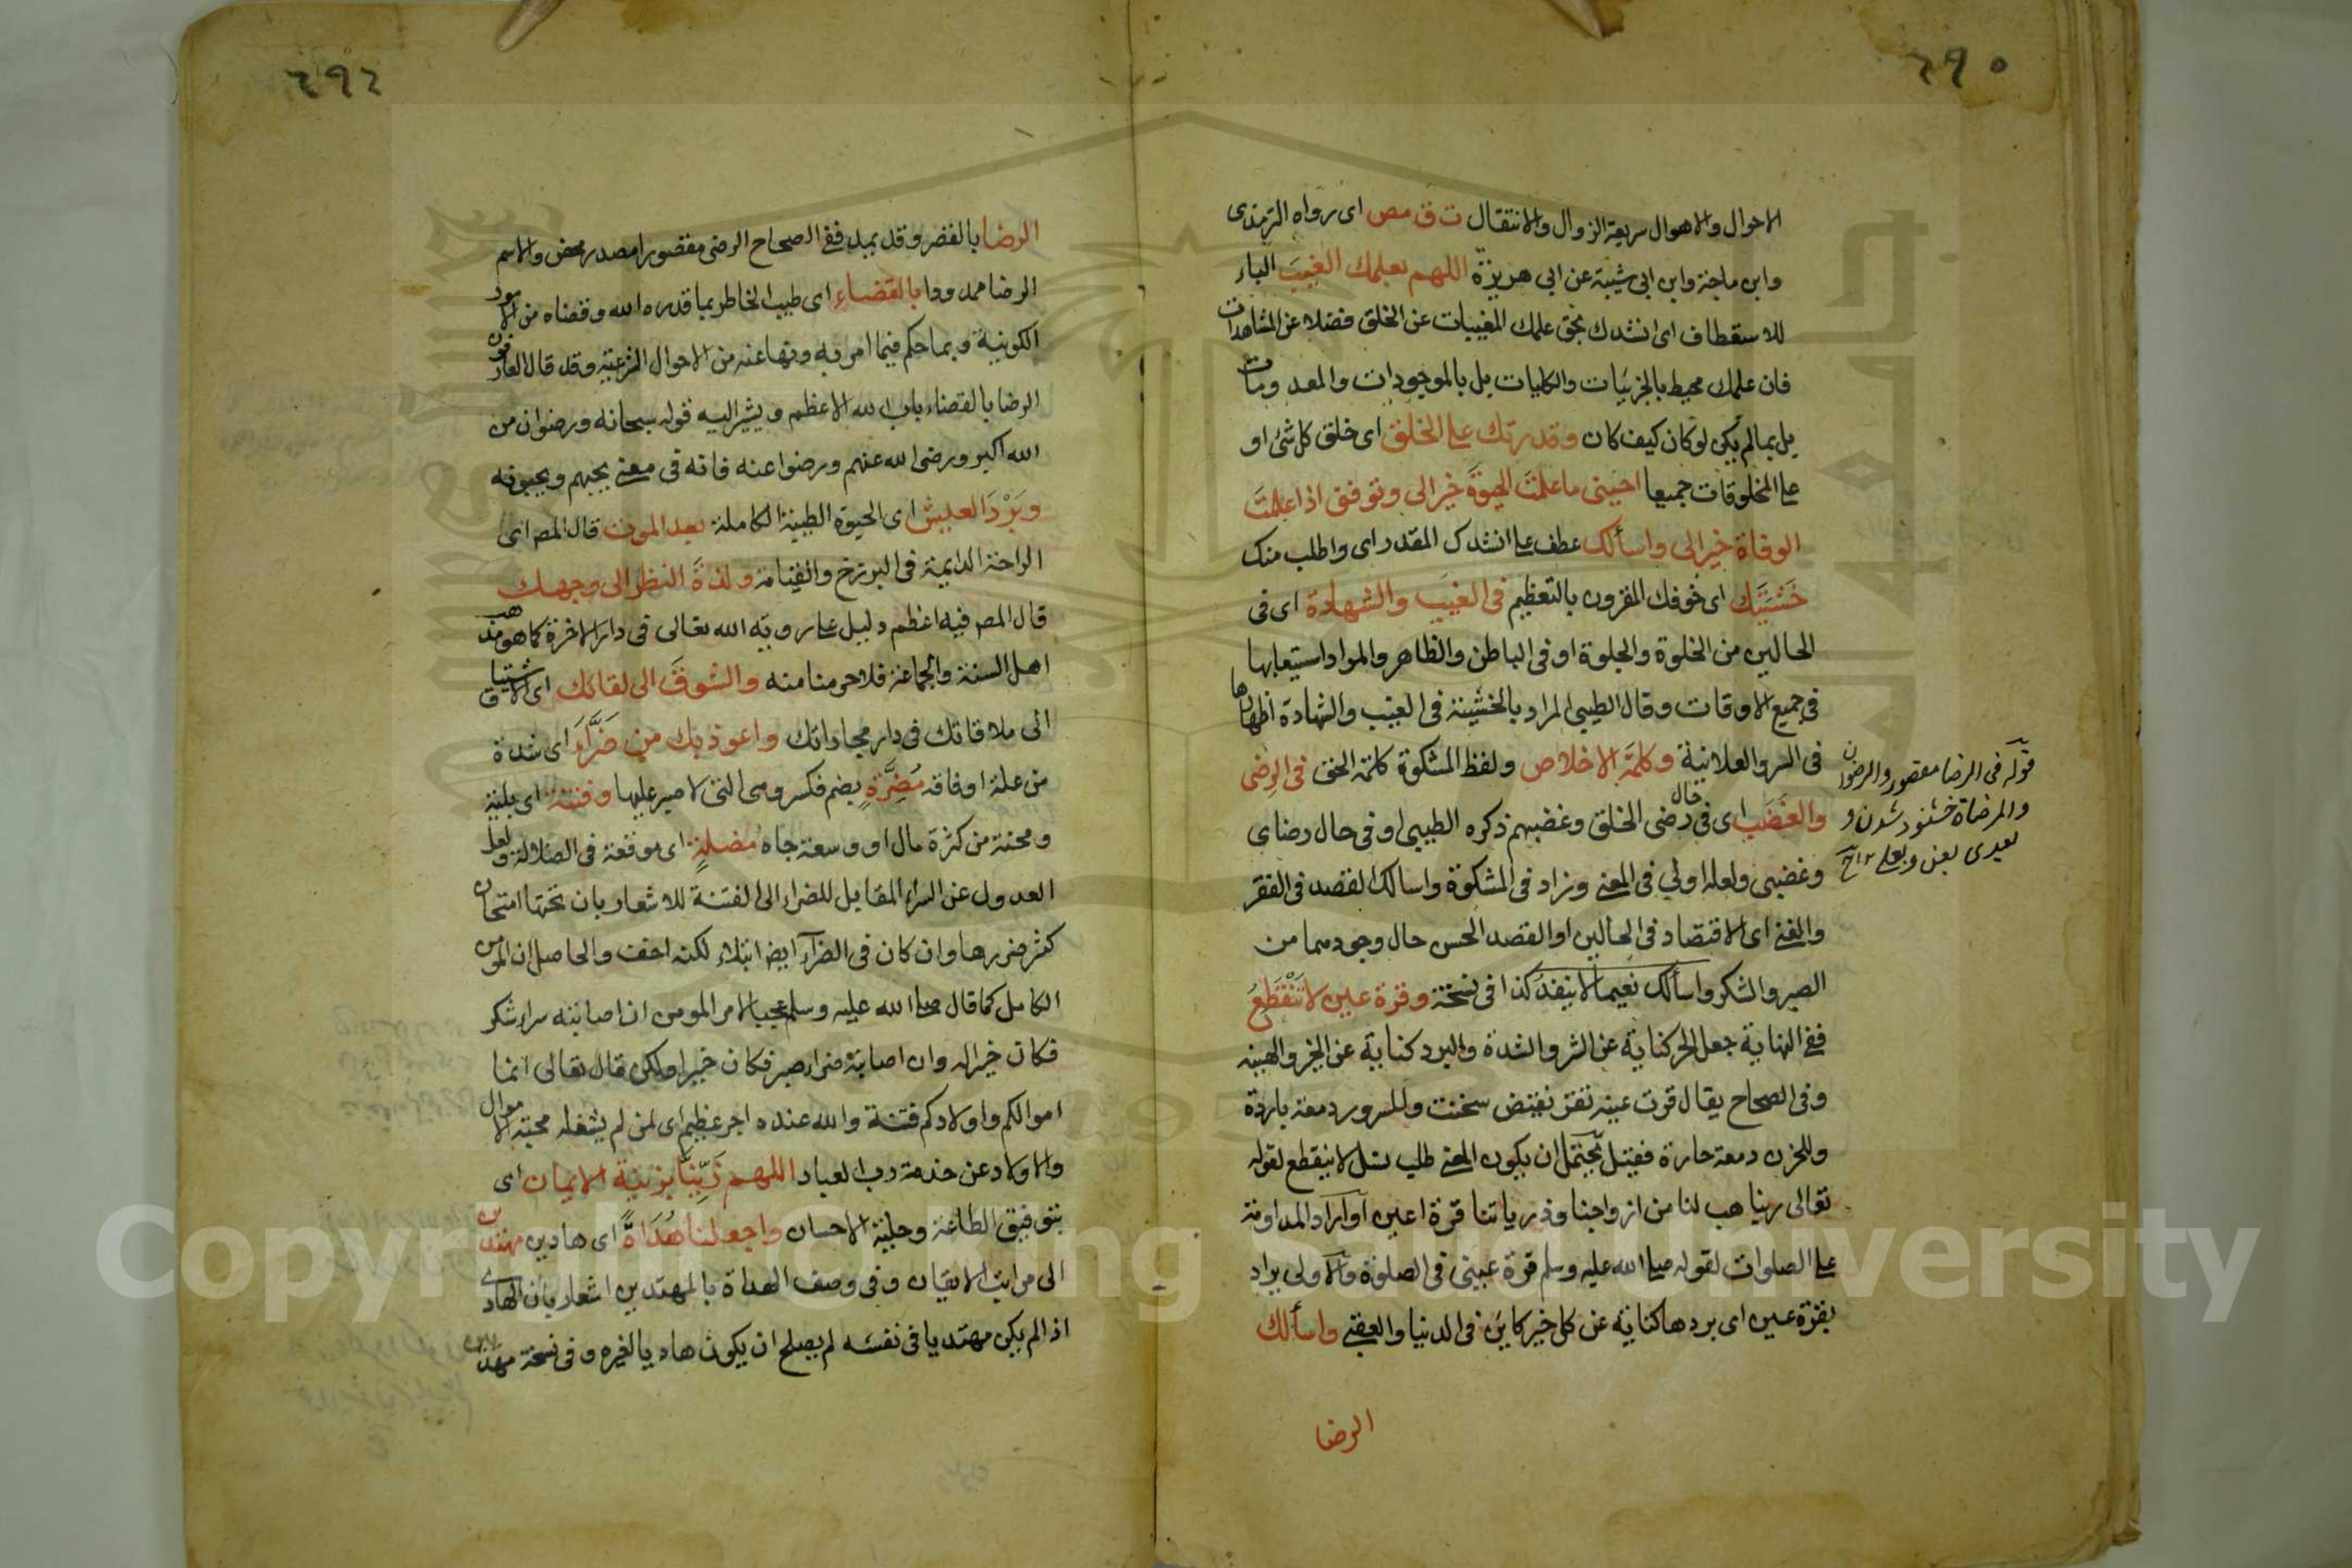 ٢٩٠
الاحوال والاهوال سريعة الزوال والانتقال ت ق مص اى رواه الترمذى
وابن ماجة وابن ابى شيبة عن ابى هريرة اللهم بعلمك الغيبَ الباء
للاستعطاف اى انشدك بحق علمك المغيبات عن الخلق فضلا عن المشاهدات
فان علمك محيط بالجزئيات والكليات بل بالموجودات والمعدومات
بل بما لم يكن لو كان كيف كان وقدرتك على الخلق اى خلق كل شئ او
على المخلوقات جميعا احينى ما علمتَ الحيوةَ خيرا لى وتوفنى اذا علمتَ
الوفاة خيرا لى واسألك عطف على انشدك المقدر اى واطلب منك
خَشْيَتَك اى خوفك المقرون بالتعظيم فى الغيب والشهادة اى فى
الحالين من الخلوة والجلوة او فى الباطن والظاهر والمراد استيعابها
فى جميع الاوقات وقال الطيبى المراد بالخشية فى الغيب والشهادة اظهارها
فى السر والعلانية وكلمة الاخلاص ولفظ المشكوة كلمة الحق فى الرِضى
والغَضَب اى فى حال رضى الخلق وغضبهم ذكره الطيبى او فى حال رضاى
وغضبى ولعله اولى فى المعنى وزاد فى المشكوة واسألك القصد فى الفقر
والغنى اى الاقتصاد فى الحالين او القصد الحسن حال وجودهما من
الصبر والشكر واسألك نعيما لا ينفد كذا فى نسخة وقرة عين لا تَنْقَطِعُ
ففى النهاية جعل الحر كناية عن الشر والشدة والبرد كناية عن الخير والهينه
وفى الصحاح يقال قرت عينه تقر نقيض سخنت وللسرور دمعة باردة
وللحزن دمعة حارة فقيل يحتمل ان يكون المعنى طلب نسل لا ينقطع لقوله
تعالى ربنا هب لنا من ازواجنا وذرياتنا قرة اعين او اراد المداومة
على الصلوات لقوله صلى الله عليه وسلم قرة عينى فى الصلوة والاولى يراد
بقرة عين اى بردها كناية عن كل خير كاين فى الدنيا والعقبى واسألك
الرضا
قوله فى الرضا مقصور والرضوان
والمرضاة خشنود شدن و
يعدى بعن وبعلى ١٢ تاج
٢٩٤
الرضا بالقصر وقد يمد ففى الصحاح الرضى مقصورا مصدر محض والاسم
الرضا ممدودا بالقضاء اى طيب الخاطر بما قدره الله وقضاه من الامور
الكونية وبما حكم فيما امر به ونهى عنه من الاحوال الشرعية وقد قال العارفون
الرضا بالقضاء باب الله الاعظم ويشير اليه قوله سبحانه ورضوان من
الله اكبر ورضى الله عنهم ورضوا عنه فانه فى معنى يحبهم ويحبونه
وبَرْدَ العيش اى الحيوة الطيبة الكاملة بعد الموت قال المص اى
الراحة الدايمة فى البرزخ والقيامة ولذةَ النظر الى وجهك
قال المص فيه اعظم دليل على روية الله تعالى فى دار الاخرة كما هو مذهب
اهل السنة والجماعة فلا حرمنا منه والشوقَ الى لقائك اى الاشتياق
الى ملاقاتك فى دار مجازاتك واعوذ بك من ضَرَّاءَ اى شدة
من علة او فاقة مُضِرَّةٍ بضم فكسر وهى التى لا صبر عليها وفتنة اى بلية
ومحنة من كثرة مال او وسعة جاه مُضلةٍ اى موقعة فى الضلالة ولعل
العدول عن السراء المقابل للضراء الى الفتنة للاشعار بان تحتها امتحان
كثر ضررها وان كان فى الضراء ايضا ابتلاء لكنه اخف والحاصل ان المومن
الكامل كما قال صلى الله عليه وسلم عجبا لامر المومن ان اصابته سراء شكر
فكان خيرا له وان اصابته ضراء صبر فكان خيرا ولكن قال تعالى انما
اموالكم واولادكم فتنة والله عنده اجر عظيم اى لمن لم يشغله محبة الاموال
والاولاد عن خدمة رب العباد اللهم زَيِّنَّا بزينة الايمان اى
بتوفيق الطاعة وحلية الاحسان واجعلنا هُدَاةً اى هادين مهتدين
الى مراتب الايقان وفى وصف الهداة بالمهتدين اشعار بان الهادى
اذا لم يكن مهتديا فى نفسه لم يصلح ان يكون هاديا لغيره وفى نسخة مهديين
Copyright © King Saud University